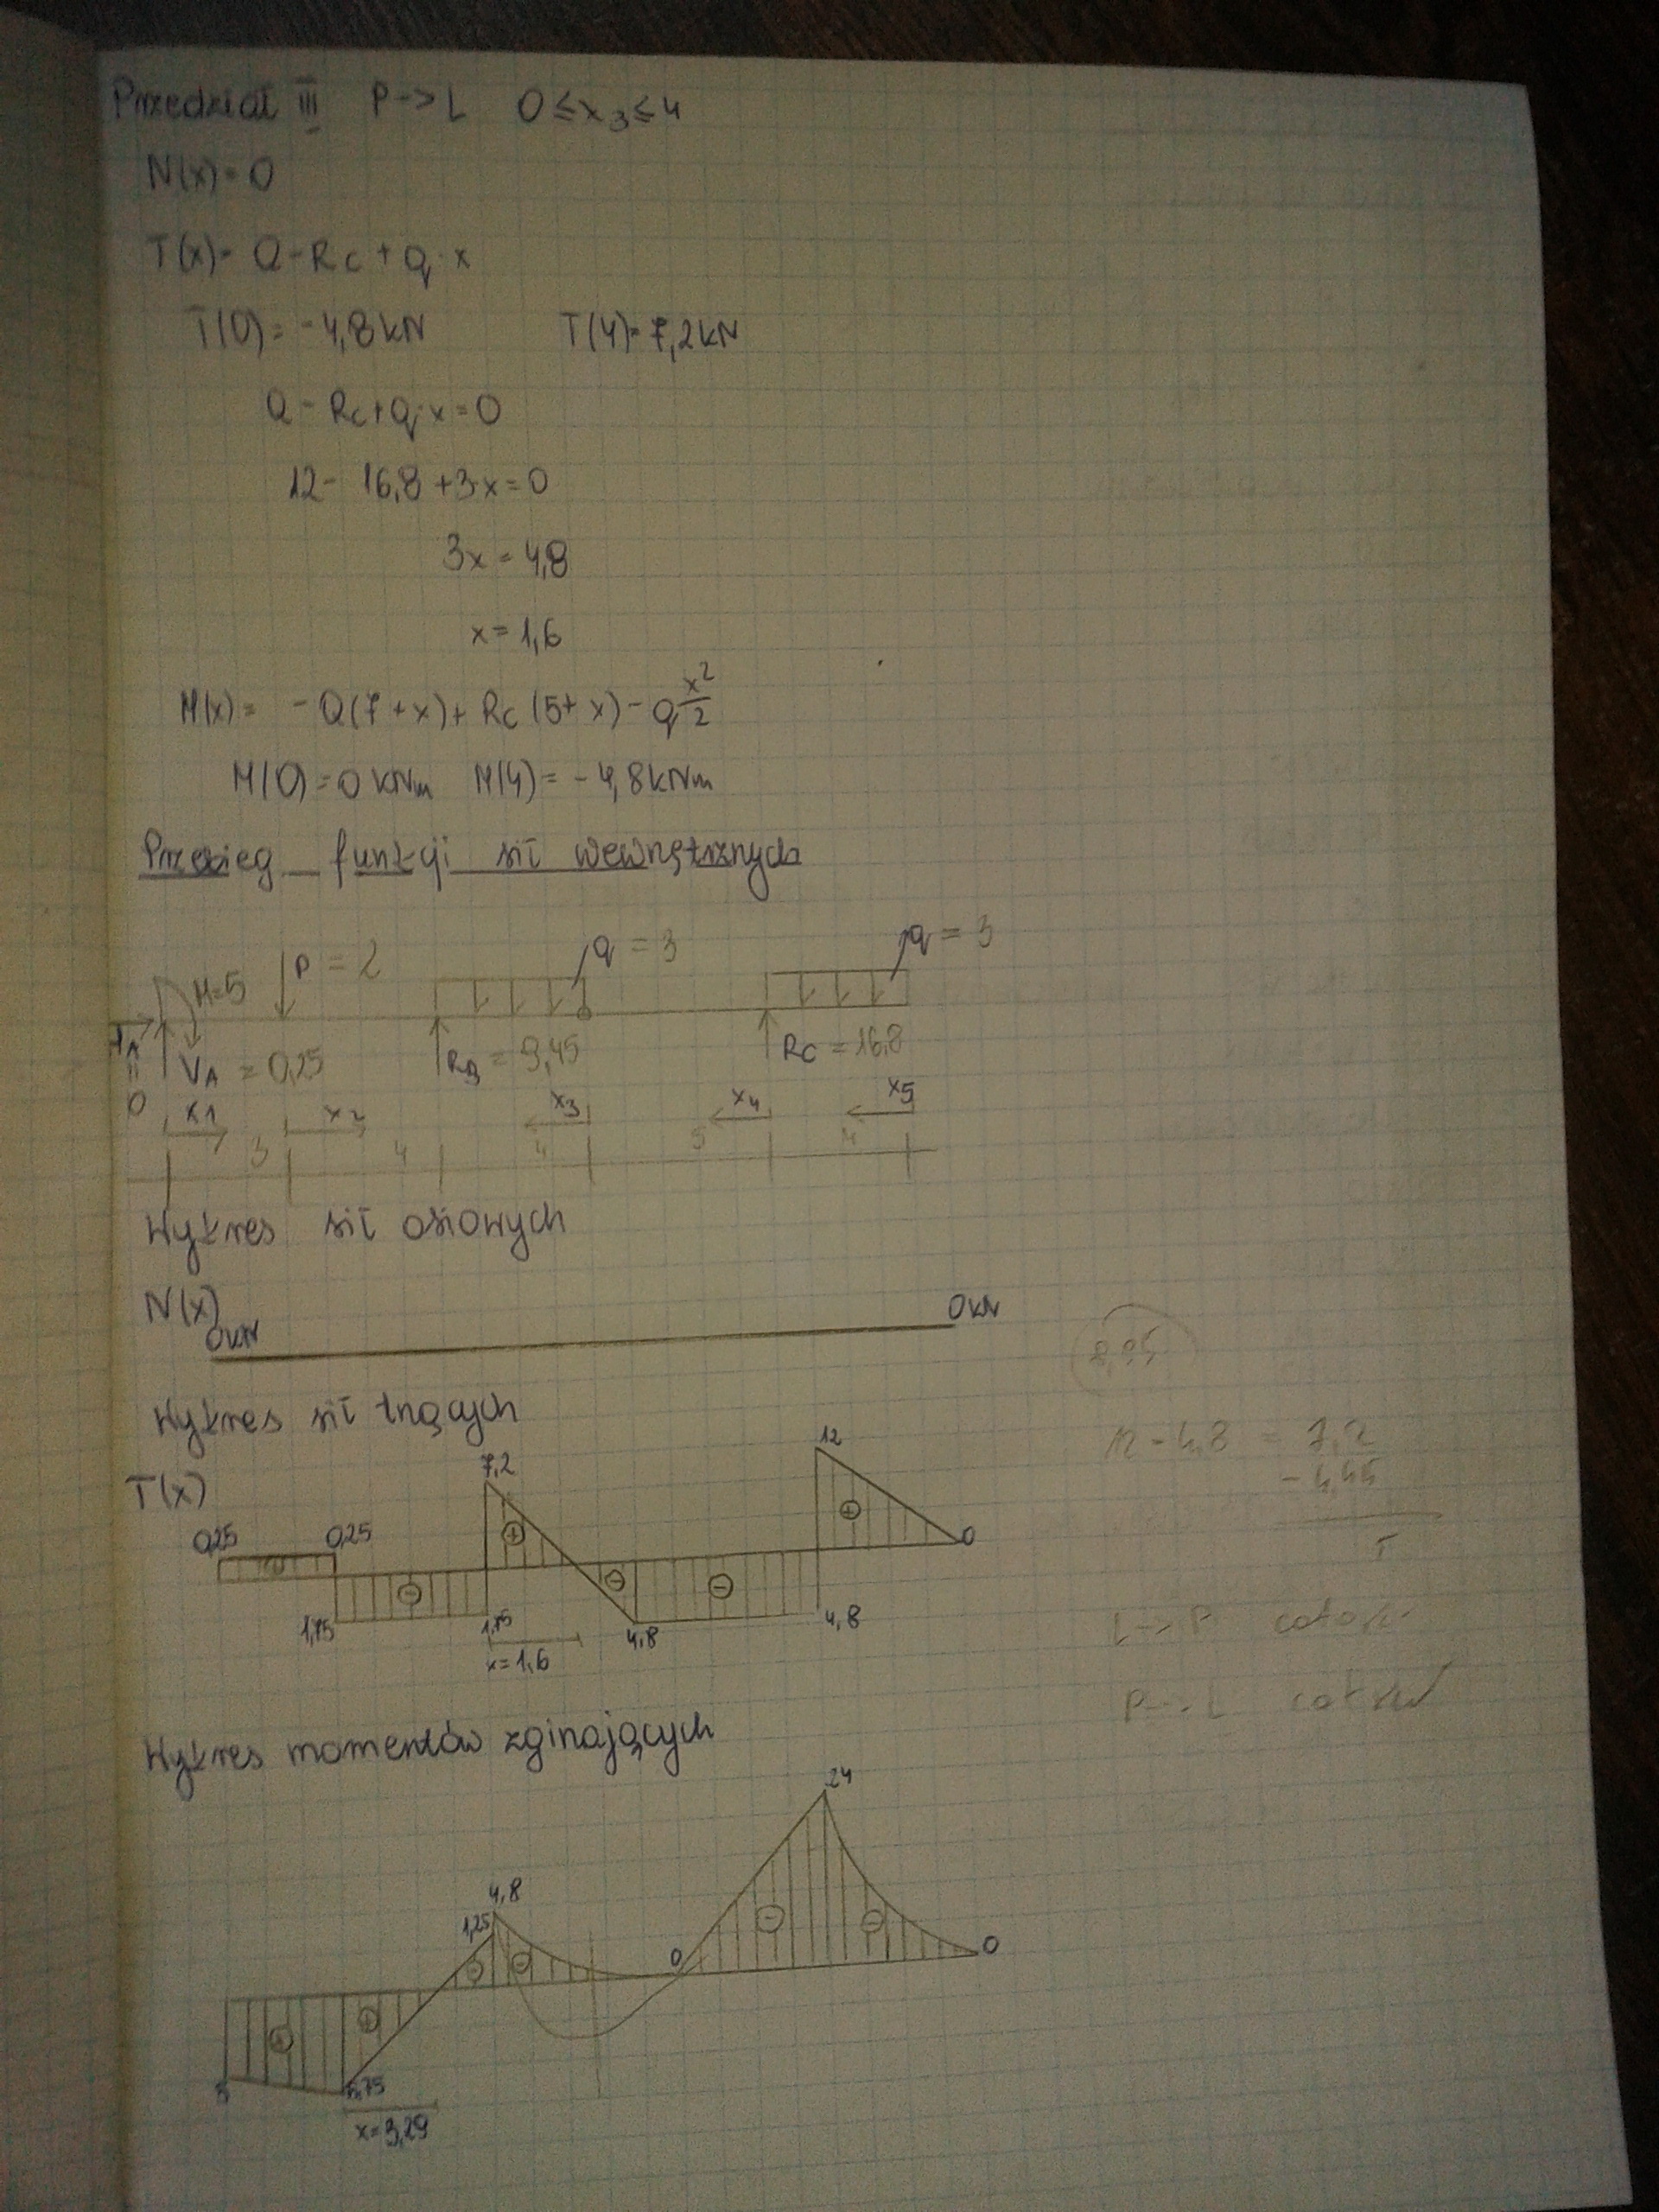 Przedział III P->L 0≤x3≤4
N(x)=0
T(x)= Q-Rc+q·x
T(0)= -4,8kN T(4)=7,2kN
Q-Rc+q·x=0
12- 16,8+3·x=0
3x=4,8
x=1,6
M(x)= -Q(7+x)+Rc(5+x)-q x²/2
M(0)=0 kNm M(4)= -4,8kNm
Przebieg funkcji sił wewnętrznych
M=5 P=2 q=3 q=3
HA = 0 VA = 0,25 RB = 9,45 Rc = 16,8
x1 x2 x3 x4 x5
3 4 4 5 4
Wykres sił osiowych
N(x)
0kN 0kN
12 - 4,8 = 7,2
Wykres sił tnących
T(x)
0,25 0,25 7,2 12 0
+ - + - - +
1,75 1,75 4,8 4,8
x=1,6
L->P całość
P->L całość
Wykres momentów zginających
24
4,8
1,25 0 0
+ + - - - -
5 5,75
x=3,29